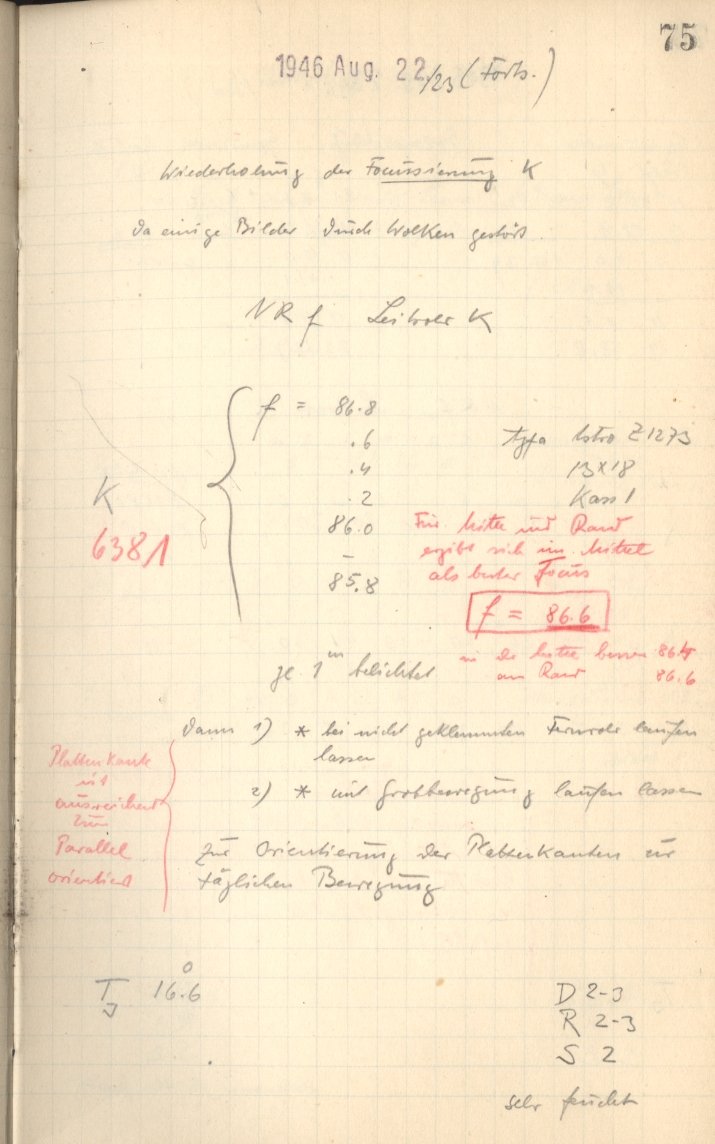 75
1946 Aug. 22/23 (Forts.)
Wiederholung der Focussierung K
da einige Bilder durch Wolken gestört.
NR f Leitrohr K
f = 86.8
.6
.4
.2
86.0
–
85.8
Agfa Astro Z 1273
13×18
Kass 1
K
6381
Für Mitte und Rand
ergibt sich im Mittel
als bester Focus
f = 86.6
in der Mitte besser 86.4
am Rand 86.6
je 1 m belichtet
Dann 1) * bei nicht geklemmten Fernrohr laufen
lassen
2) * mit Grobbewegung laufen lassen
Plattenkante
ist
ausreichend
zur
Parallel
orientiert
Zur Orientierung der Plattenkanten zur
täglichen Bewegung
T 16.6°
J
D 2-3
R 2-3
S 2
sehr feucht